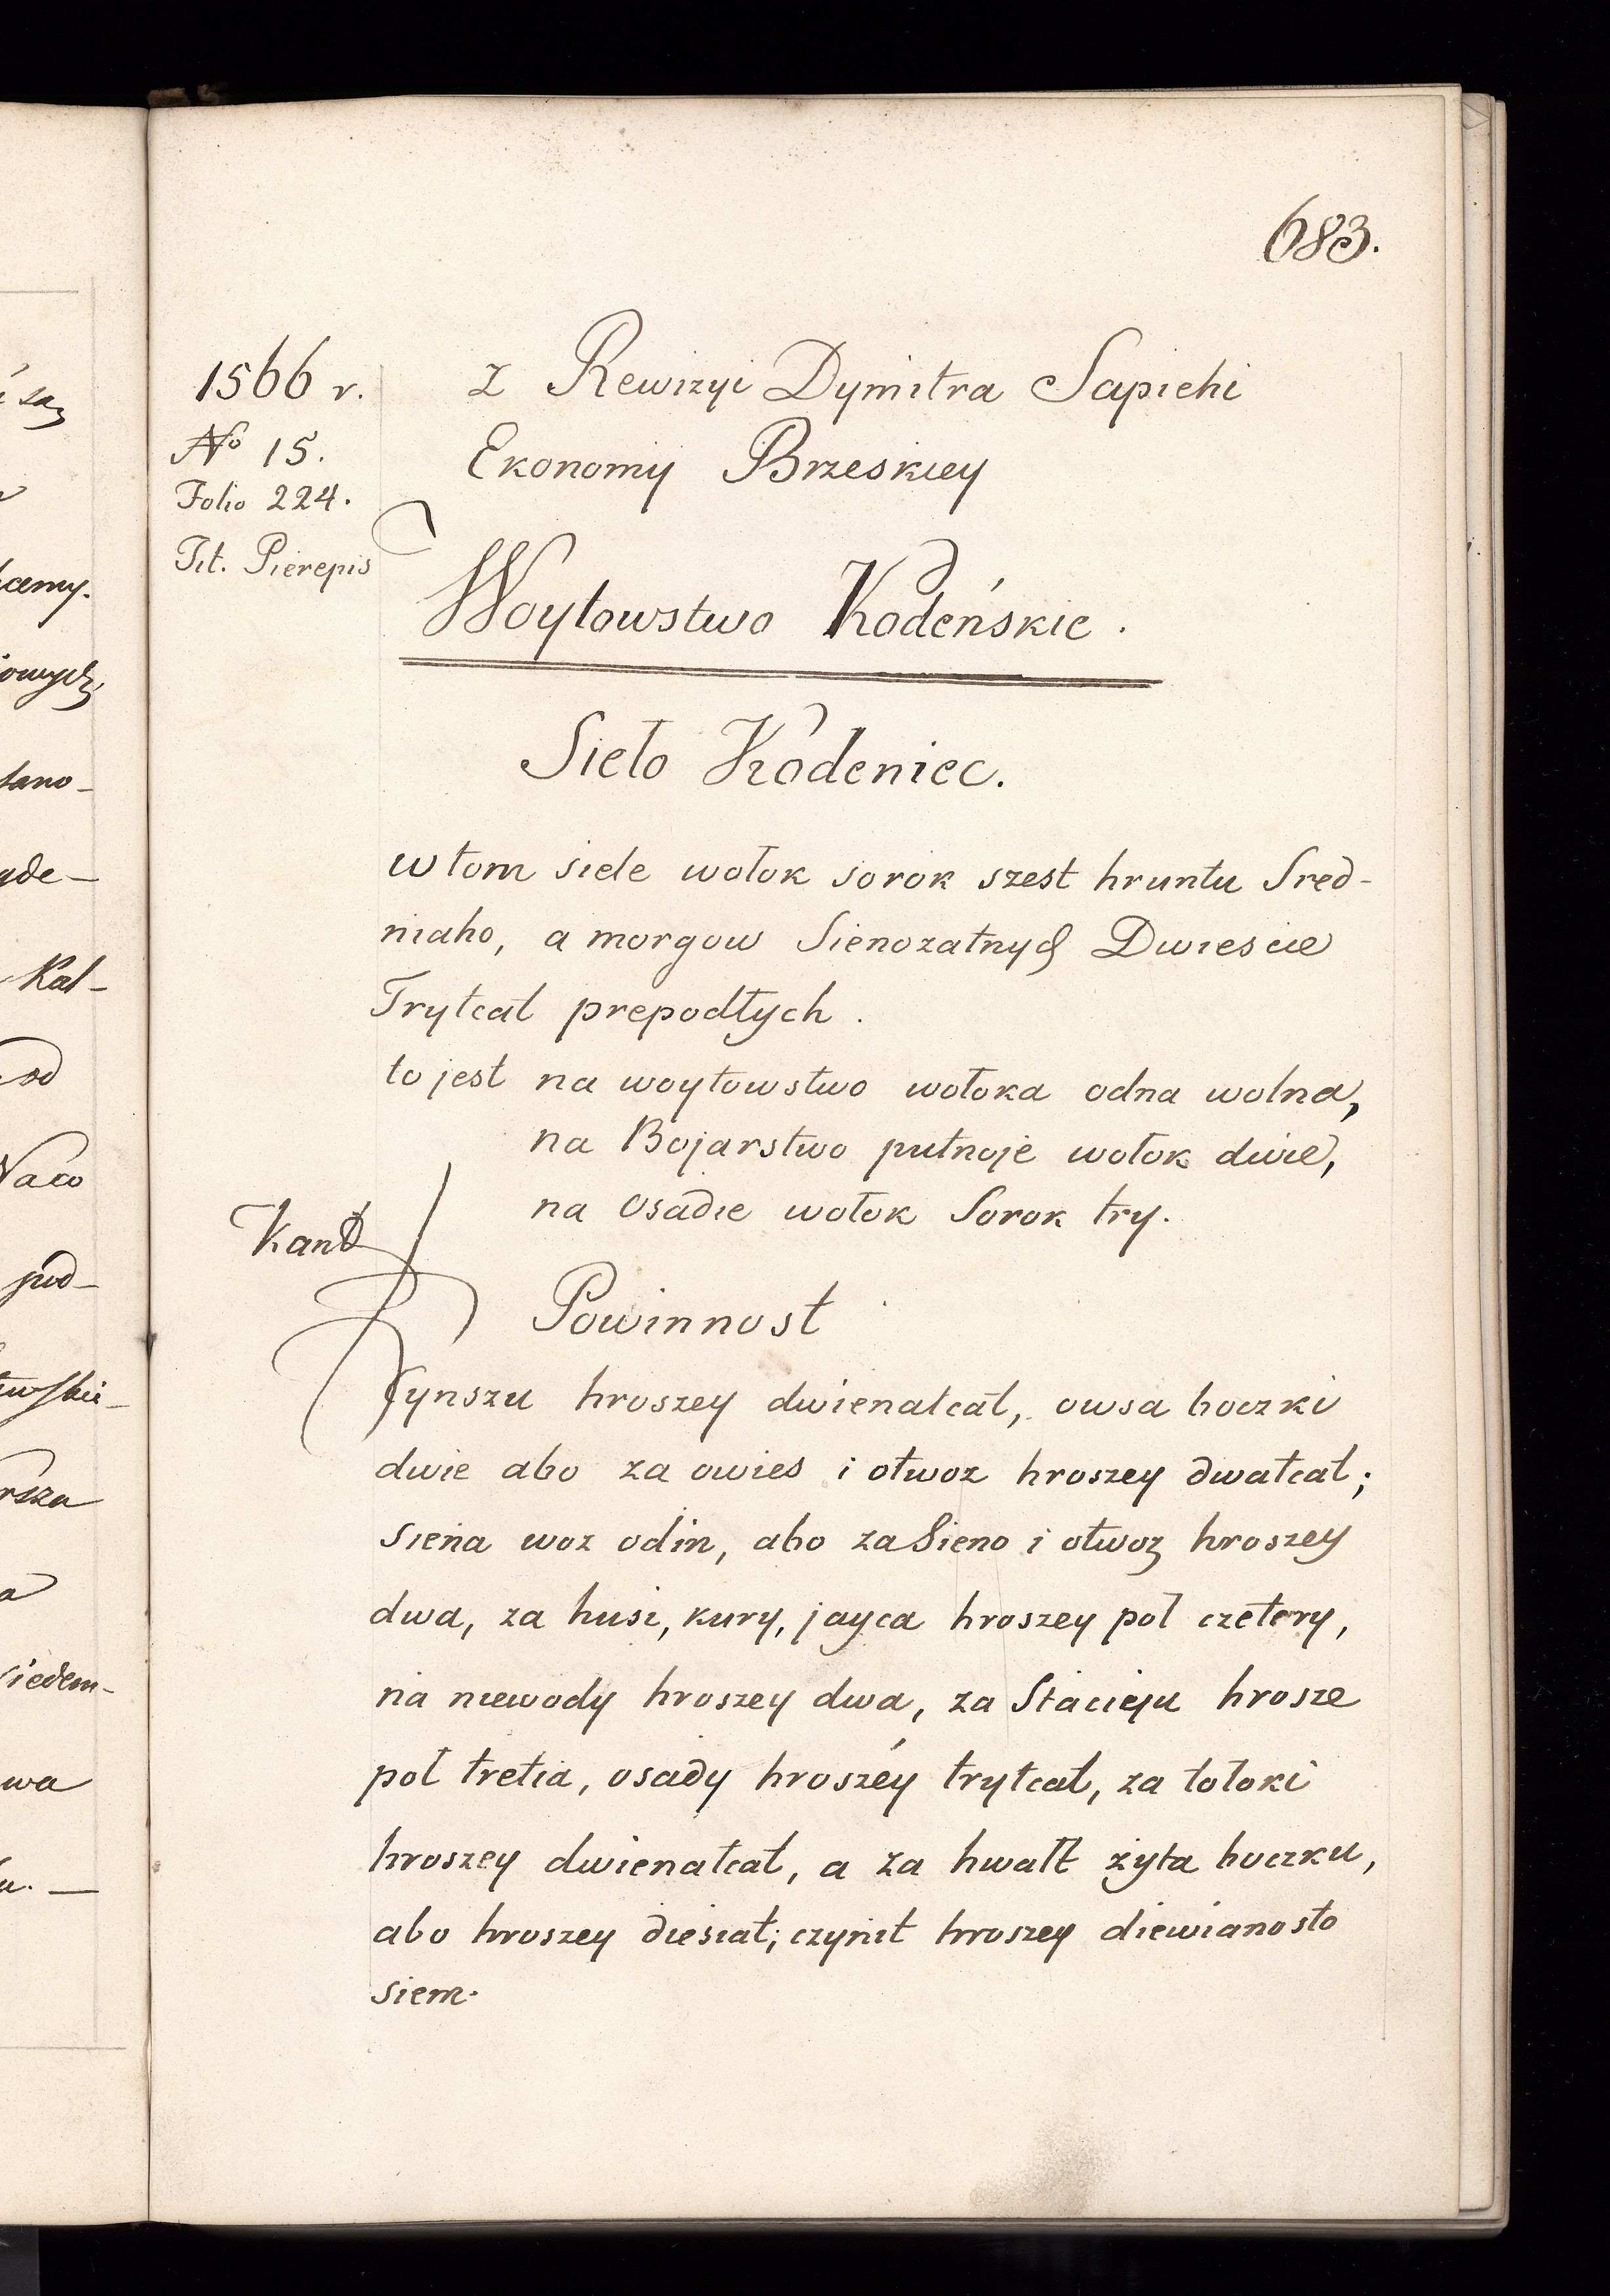 683.
1566 r.
No 15.
Folio 224.
Tit. Pierepis
z Rewizyi Dymitra Sapiehi
Ekonomij Brzeskiey
Woytowstwo Kodeńskie.
Sieło Kodeniec.
w tom siele wołok sorok szest hruntu Sred-
niaho, a morgow Sienozatnych Dwiescie
Trytcat prepodłych.
to jest na woytowstwo wołoka odna wolna,
na Bojarstwo putnoje wołok dwie,
na osadie wołok Sorok try.
Powinnost
Cynszu hroszey dwienatcat, owsa boczki
dwie abo za owies i otwoz hroszey dwatcat;
siena woz odin, abo za Sieno i otwoz hroszey
dwa, za husi, kury, jayca hroszey poł czetery,
na niewody hroszey dwa, za Stacieju hrosze
poł tretia, osady hroszéy trytcat, za tołoki
hroszey dwienatcat, a za hwałt żyta boczku,
abo hroszey diesiat; czynit hroszey diewianosto
siem.
cemy.
Kal-
od
rsza
siedem-
wa